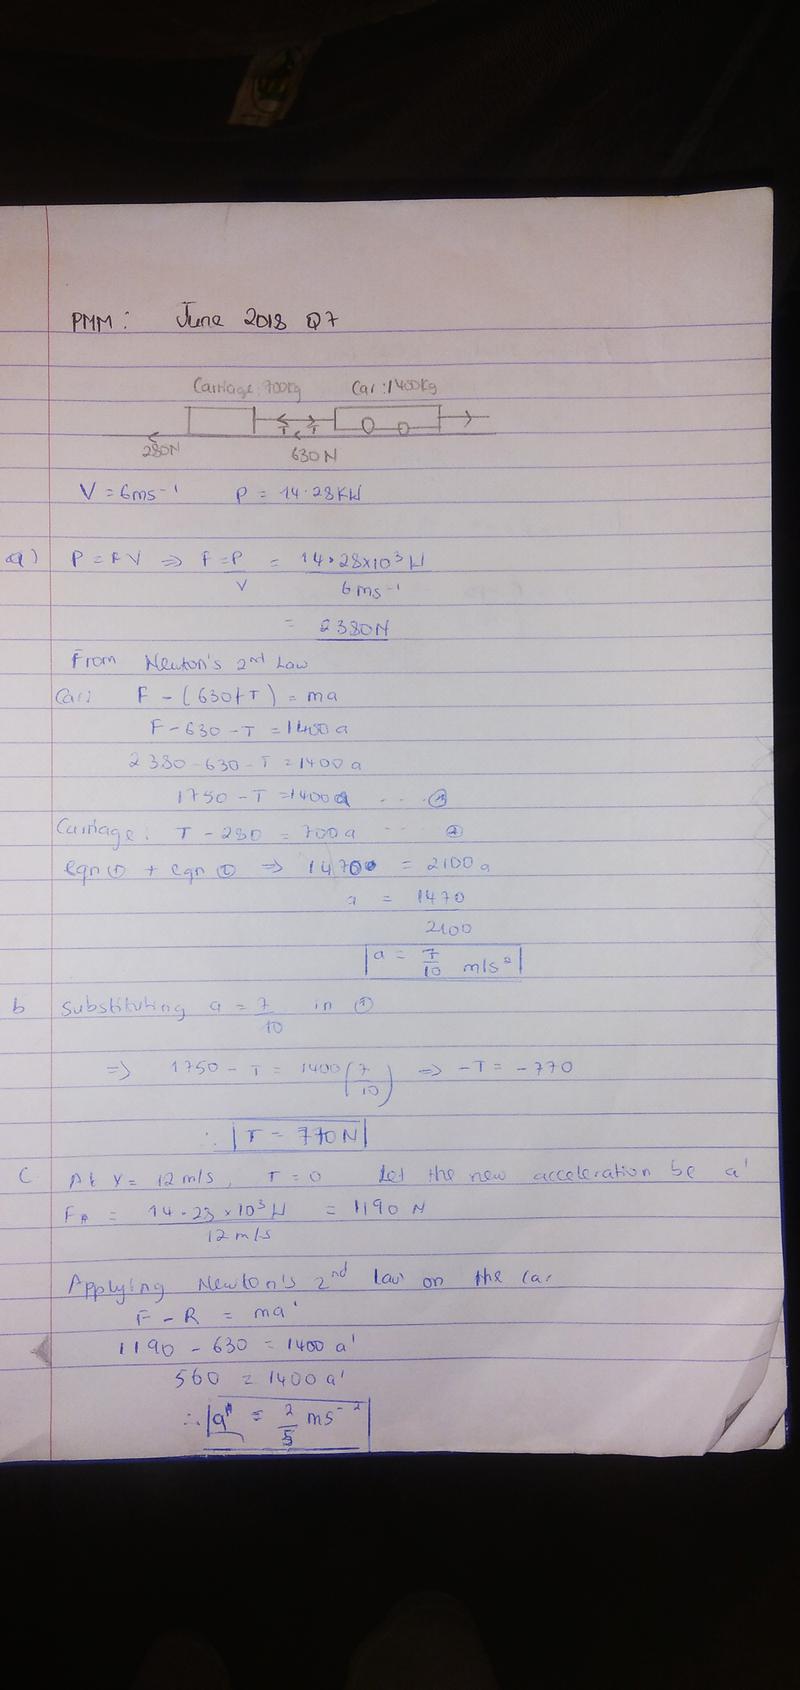 PMM: June 2018 Q7
Carriage: 700kg Car: 1400kg
T T
280N 630N
V = 6ms⁻¹ P = 14.28KW
a) P = FV ⇒ F = P/V = 14.28×10³W / 6ms⁻¹
= 2380N
From Newton's 2nd Law
Car: F - (630+T) = ma
F - 630 - T = 1400a
2380 - 630 - T = 1400a
1750 - T = 1400a ... ①
Carriage: T - 280 = 700a ... ②
eqn ① + eqn ② ⇒ 1470 = 2100a
a = 1470/2100
a = 7/10 m/s²
b Substituting a = 7/10 in ①
⇒ 1750 - T = 1400(7/10) ⇒ -T = -770
∴ T = 770N
C At V = 12m/s, T = 0 Let the new acceleration be a'
= 14.28×10³W / 12m/s = 1190 N
Applying Newton's 2nd law on the car
F - R = ma'
1190 - 630 = 1400 a'
560 = 1400 a'
∴ a' = 2/5 ms⁻²